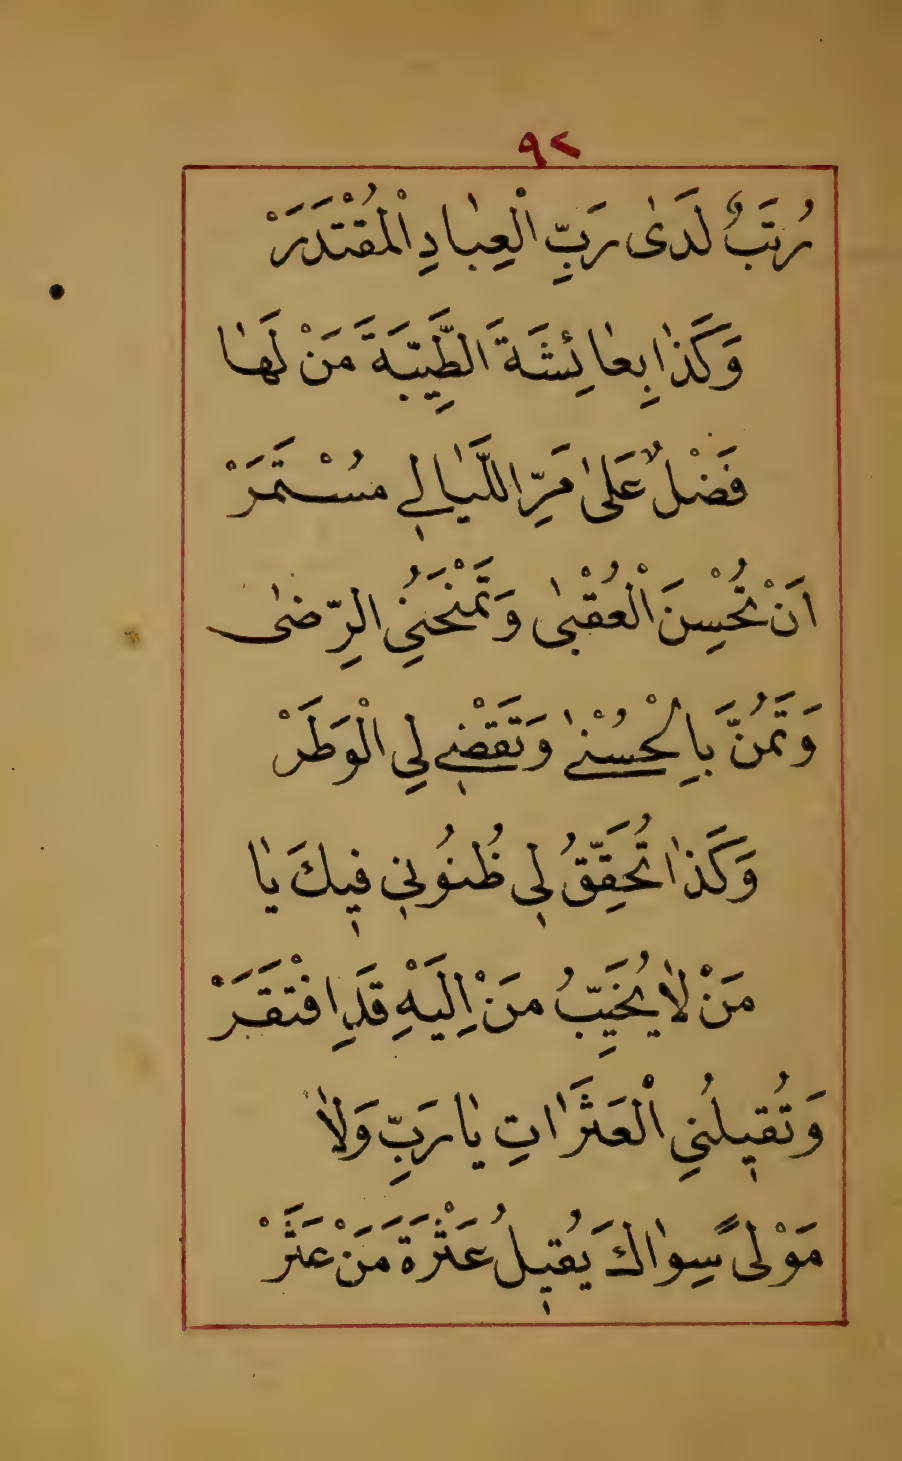 ٩٢
رُتَبٌ لَدَىٰ رَبِّ الْعِبٰادِ الْمُقْتَدَرْ
وَكَذٰا بِعٰائِشَةَ الطَّيِّبَةَ مَنْ لَهٰا
فَضْلٌ عَلىٰ مَرِّ اللَّيٰالِي مُسْتَمَرْ
اَنْ تُحْسِنَ الْعُقْبىٰ وَتَمْنَحَنُِي الرِّضىٰ
وَتَمُنَّ بِالْحُسْنىٰ وَتَقْضِي لِي الْوَطَرْ
وَكَذٰا تُحَقِّقُ لِي ظُنُونِي فِيكَ يٰا
مَنْ لٰا يُخَيِّبُ مَنْ اِلَيْهِ قَدِ افْتَقَرْ
وَتُقِيلُنِي الْعَثَرٰاتِ يٰا رَبِّ وَلٰا
مَوْلىً سِوٰاكَ يُقِيلُ عَثْرَةَ مَنْ عَثَرْ